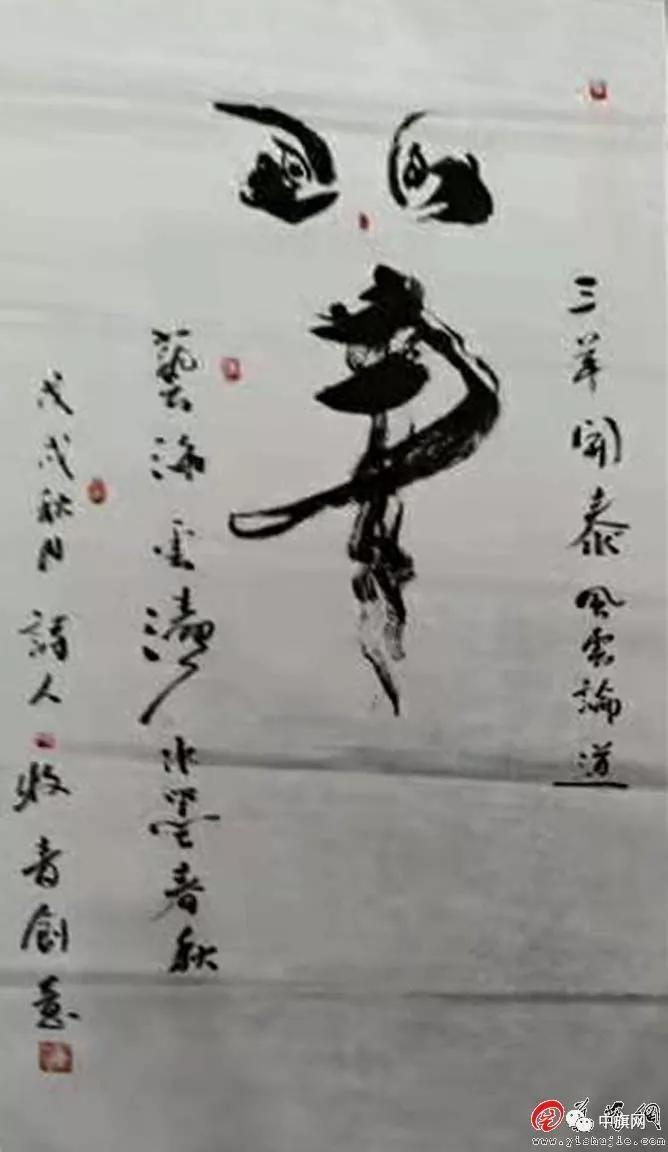 三羊開泰 風雲論道
藝海濤 水墨春秋
戊戌秋月 詩人牧青創意
中旗网
www.yishujie.com